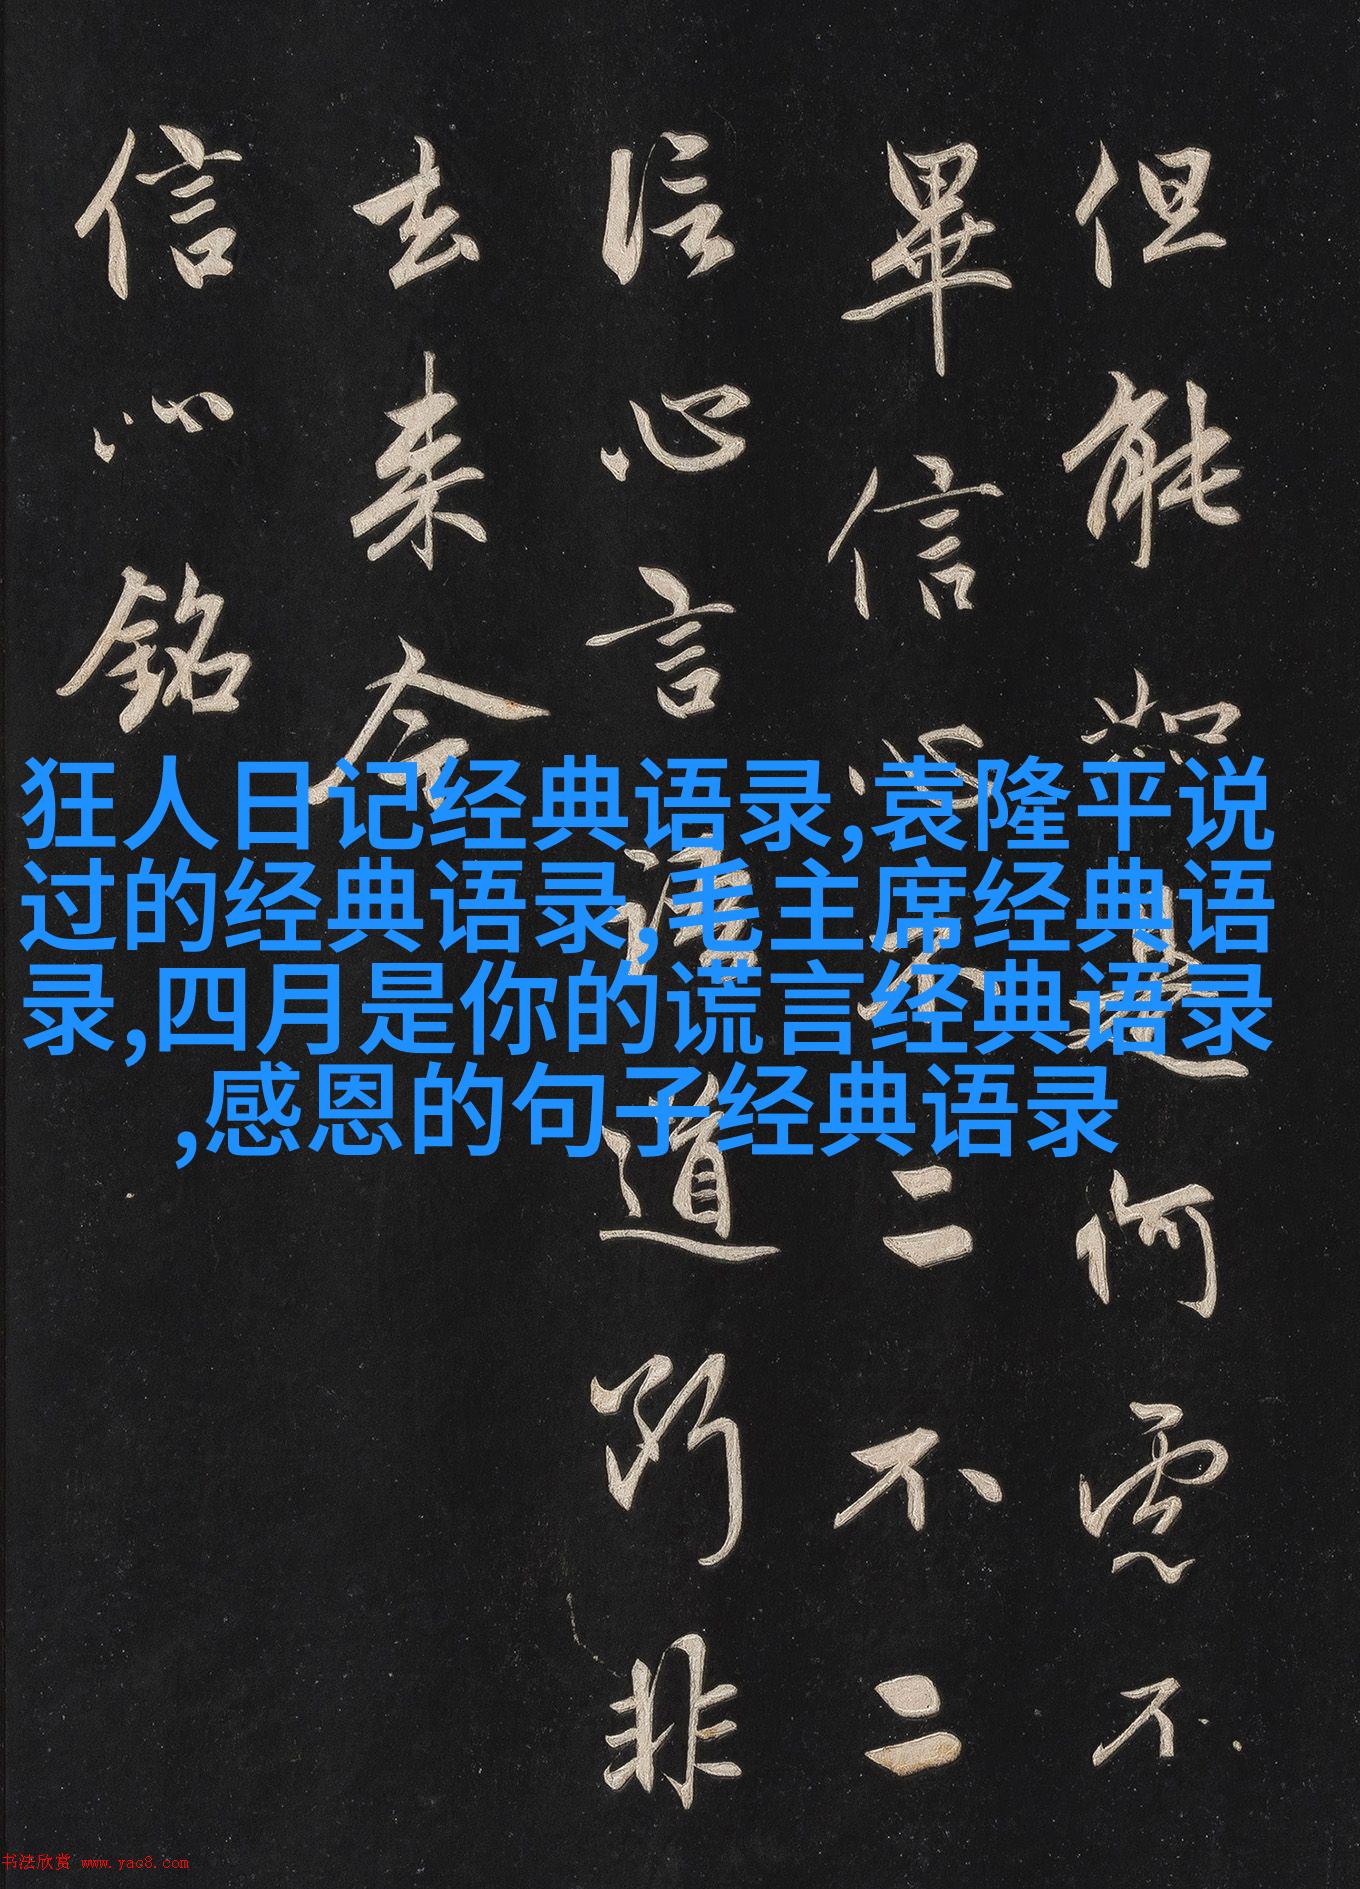 但能如是何虑不
畢信心不二不二
信心言語道断非
去来今
信心铭
狂人日记经典语录,袁隆平说
过的经典语录,毛主席经典语
录,四月是你的谎言经典语录
,感恩的句子经典语录
书法欣赏 www.yac8.com